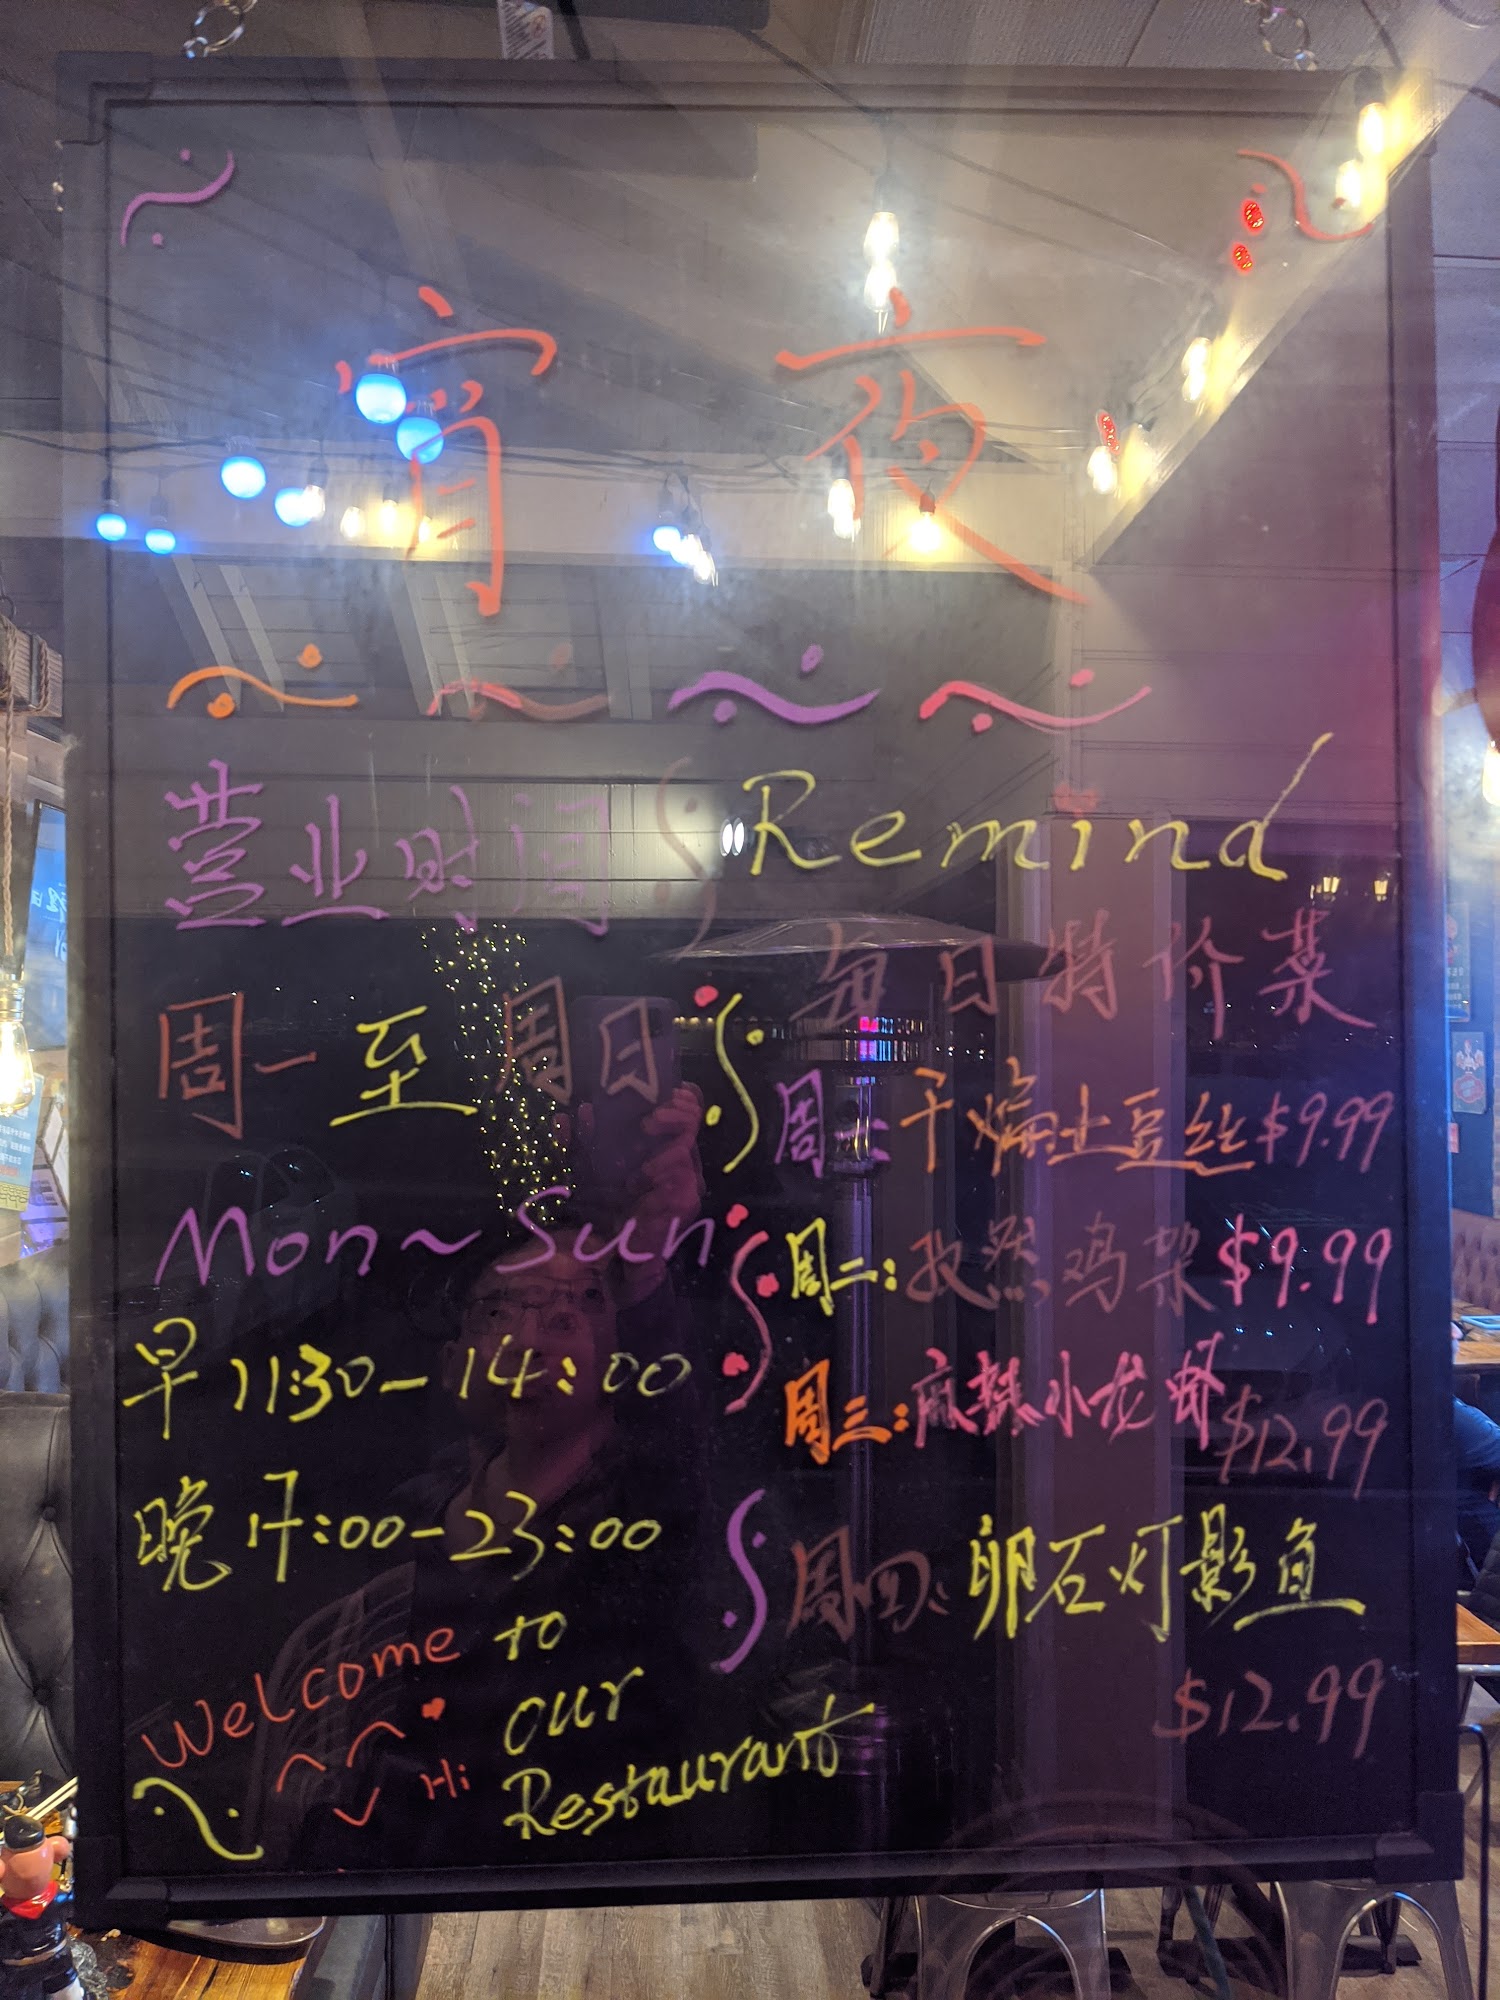 宵夜
营业时间
周一至周日
Mon~Sun
早 11:30-14:00
晚 17:00-23:00
Welcome to
our
Restaurant
Hi
Remind
每日特价菜
周一: 干煸土豆丝 $9.99
周二: 孜然鸡架 $9.99
周三: 麻辣小龙虾 $12.99
周四: 卵石灯影鱼
$12.99